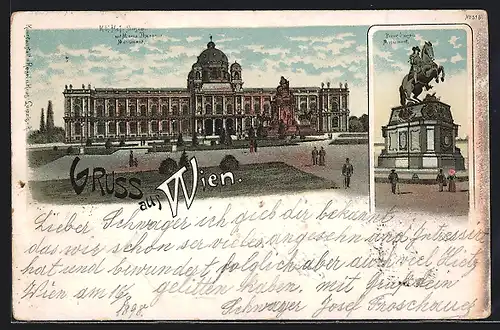 K.k. Hof-Museum
mit Maria Theresia
Monument.
Prinz Eugen
Monument.
Gruss aus Wien.
Lieber Schwager ich gieb dir bekannt
das wir schon ser vieles angesehn und
hat und bewundert folglich aber auch viel Hietz
Wien am 16/ gelitten haben, mit
98. Schwager Josef